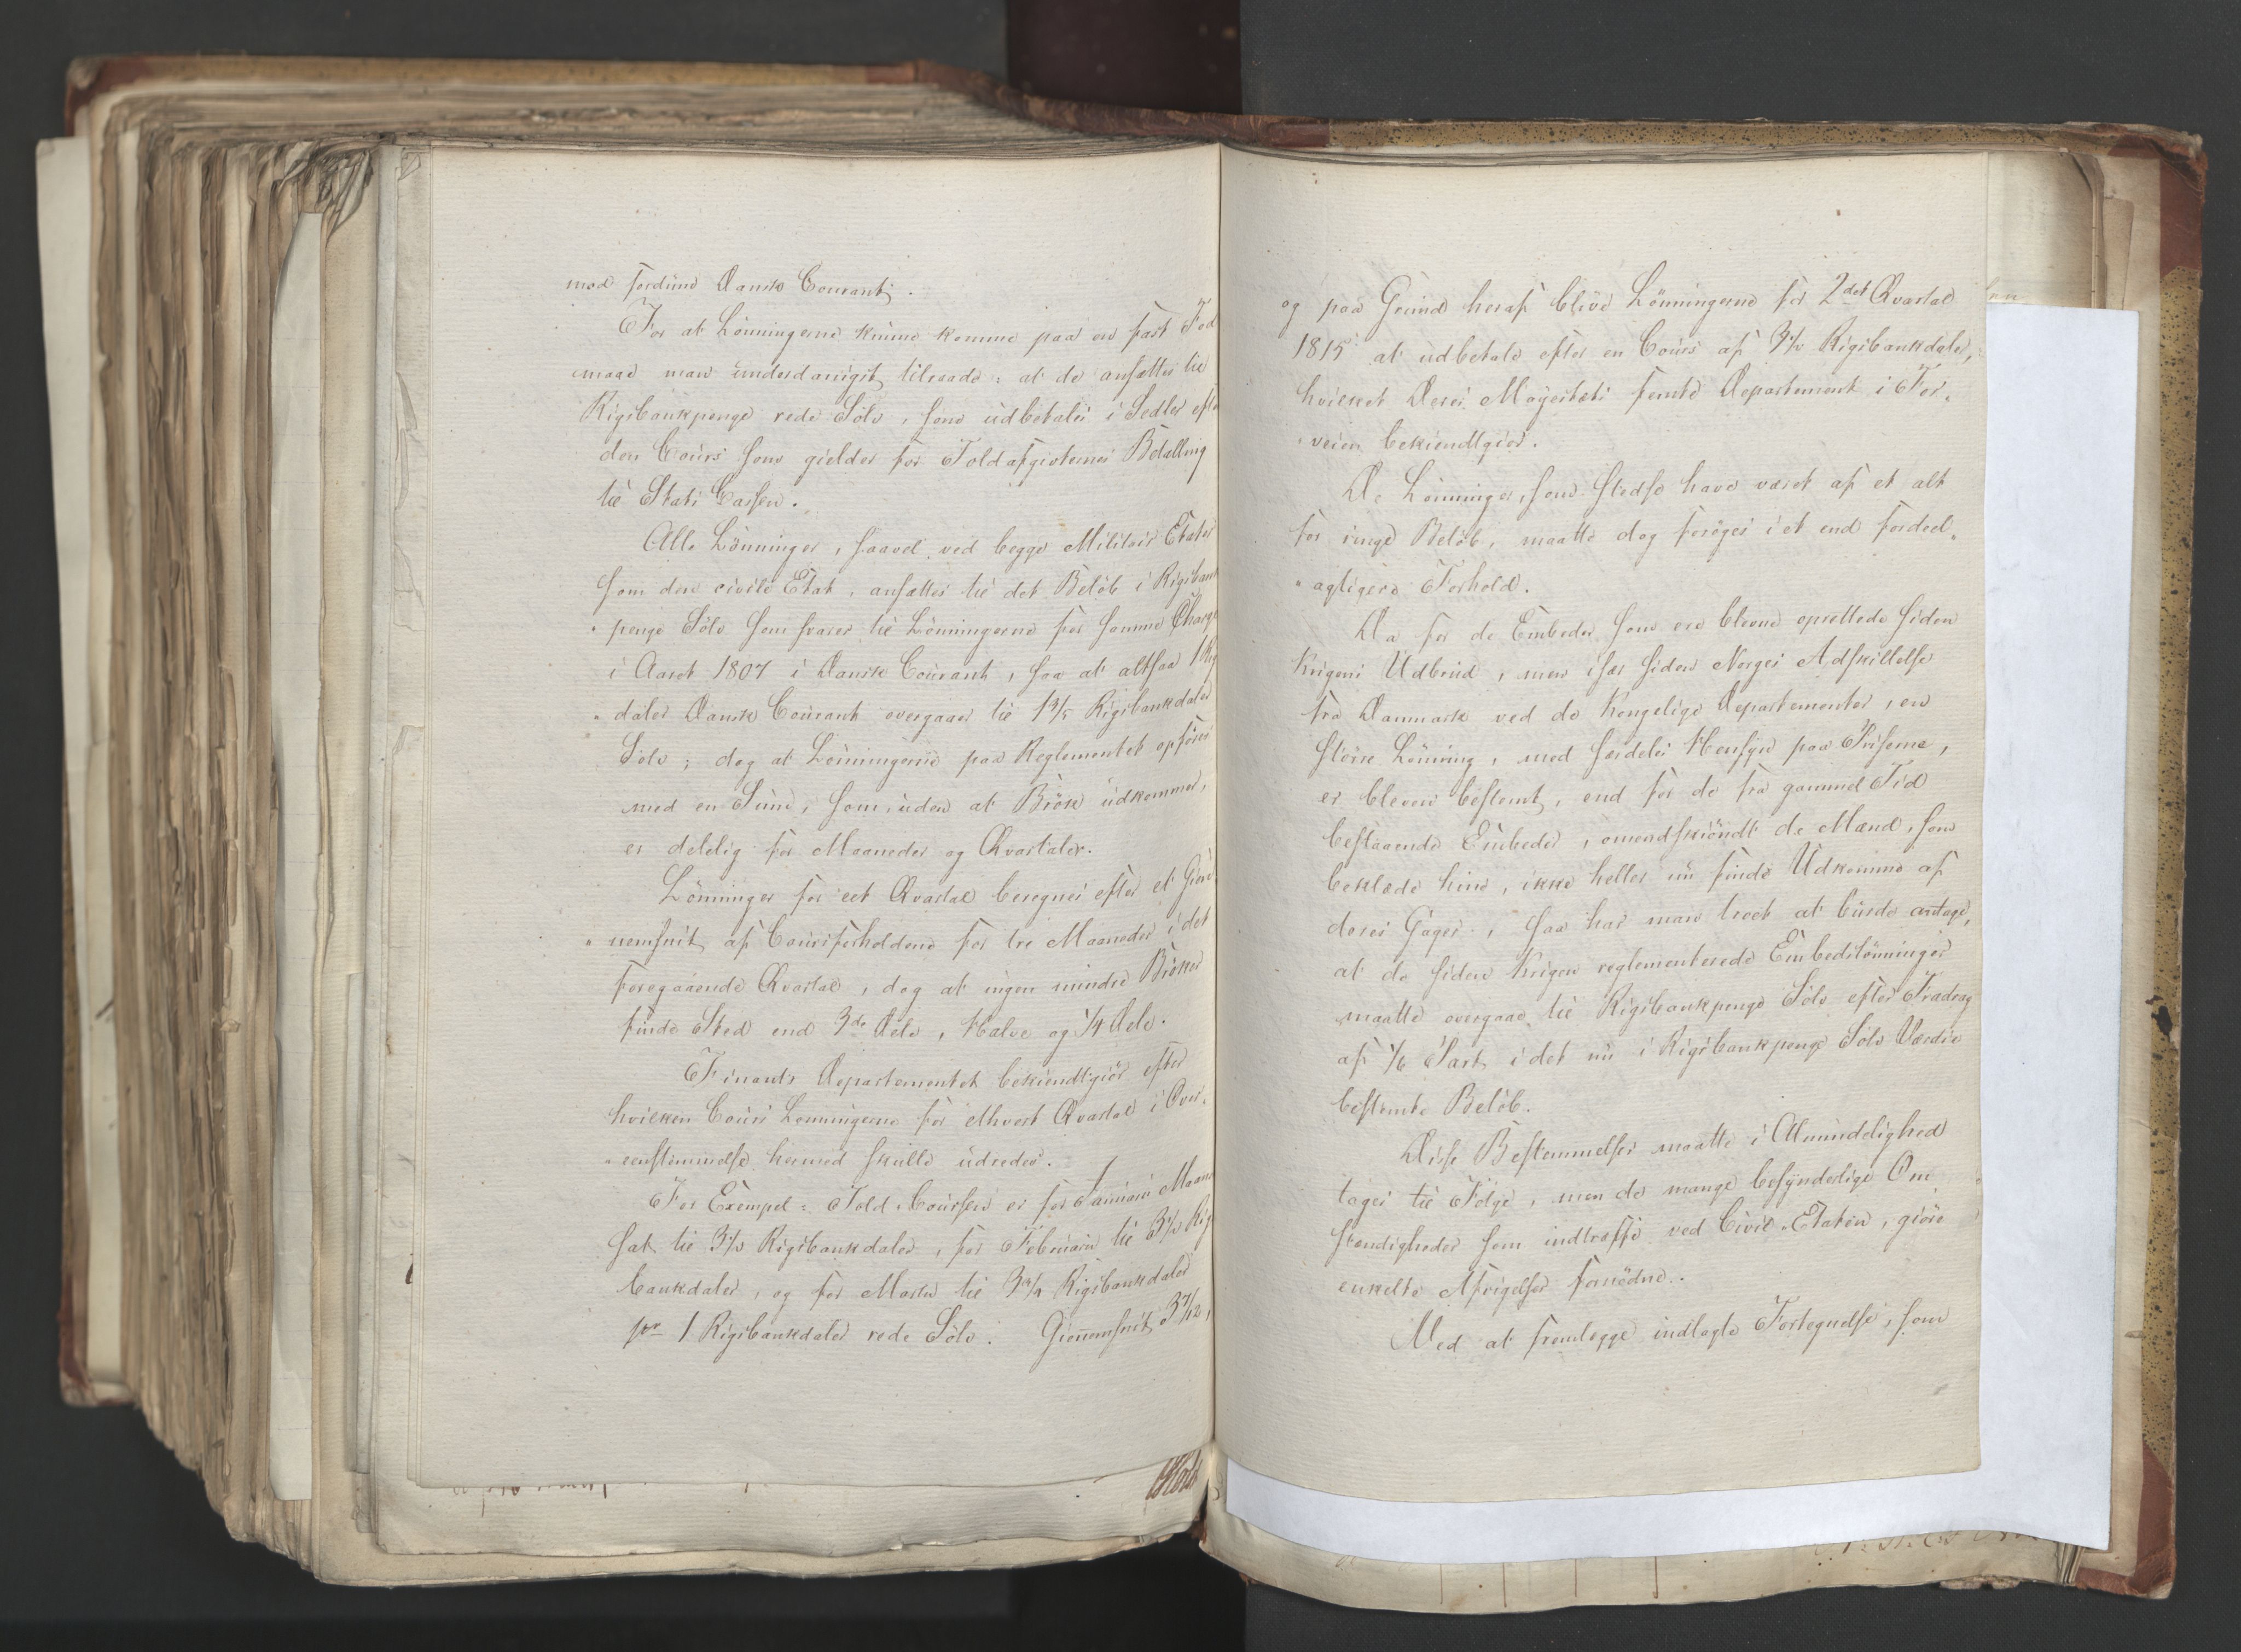 mod fordums Dansk Courant.
For at Lönningerne kunne komme paa en fast Fod
maae man underdanigst tilraade: at de ansættes til
Rigsbankpenge rede Sölv, som udbetales i Sedler efter
den Cours som gielder for Toldafgivternes Betalling
til Stats Cassen.
Alle Lönninger, saavel ved begge Militair Etater
som den civile Etat, ansættes til det Belöb i Rigsbank
penge Sölv som svarer til Lönningerne for samme Charge
i Aaret 1807 i Dansk Courant, saa at altsaa 1 Rigs
daler Dansk Courant overgaaer til 1 3/5 Rigsbankdaler
Sölv; dog at Lönningerne paa Reglementet opföres
med en Sum, som, uden at Brök udkommer,
er delelig for Maaneder og Qvartaler.
Lönninger for eet Qvartal beregnes efter et Gien
„nemsnit af Coursforholdene for tre Maaneder i det
foregaaende Qvartal, dog at ingen mindre Bröker
finde Sted end 3de Dele, Halve og 1/4 Dele.
Finants Departementet bekiendtgiör efter
hvilken Cours Lönningerne for ethvert Qvartal i Over-
„eensstemmelse hermed skulle udredes.
For Exempel: Told-Coursen er for Januari Maaned
sat til 3 1/2 Rigsbankdaler, for Februari til 3 1/2 Rigs
bankdaler, og for Marts til 3 3/4 Rigsbankdaler
pr 1 Rigsbankdaler rede Sölv. Giennemsnit 3 7/12,
og paa Grund heraf blive Lönningerne for 2det Qvartal
1815 at udbetale efter en Cours af 3 1/2 Rigsbankdaler,
hvilket Deres Majestæts femte Departement i For-
„veien bekiendtgiör.
De Lönninger, som stedse have været af et alt
for ringe Belöb, maatte dog foröges i et end fordeel„
„agtigere Forhold.
Da for de Embeder som ere blevne oprettede siden
Krigens Udbrud, men især siden Norges Adskillelse
fra Danmark ved de Kongelige Departementer, en
större Lönning, med særdeles Hensyn paa Priserne,
er bleven bestemt, end for de fra gammel Tid
bestaaende Embeder, omendskiöndt de Mænd, som
beklæde hine, ikke heller nu finde Udkomme af
deres Gager, saa har man troet at burde antage,
at de siden Krigen reglementerede Embedslönninger
maatte overgaae til Rigsbankpenge Sölv efter Fradrag
af 1/6 Part i det nu i Rigsbankpenge Sölv Værdie
bestemte Belöb.
Disse Bestemmelser maatte i Almindelighed
tages til Fölge, men de mange besynderlige Om
stændigheder som indtræffe ved Civil-Etaten, giöre
enkelte Afvigelser fornödne.
Ved at fremlægge indlagte Fortegnelse, som